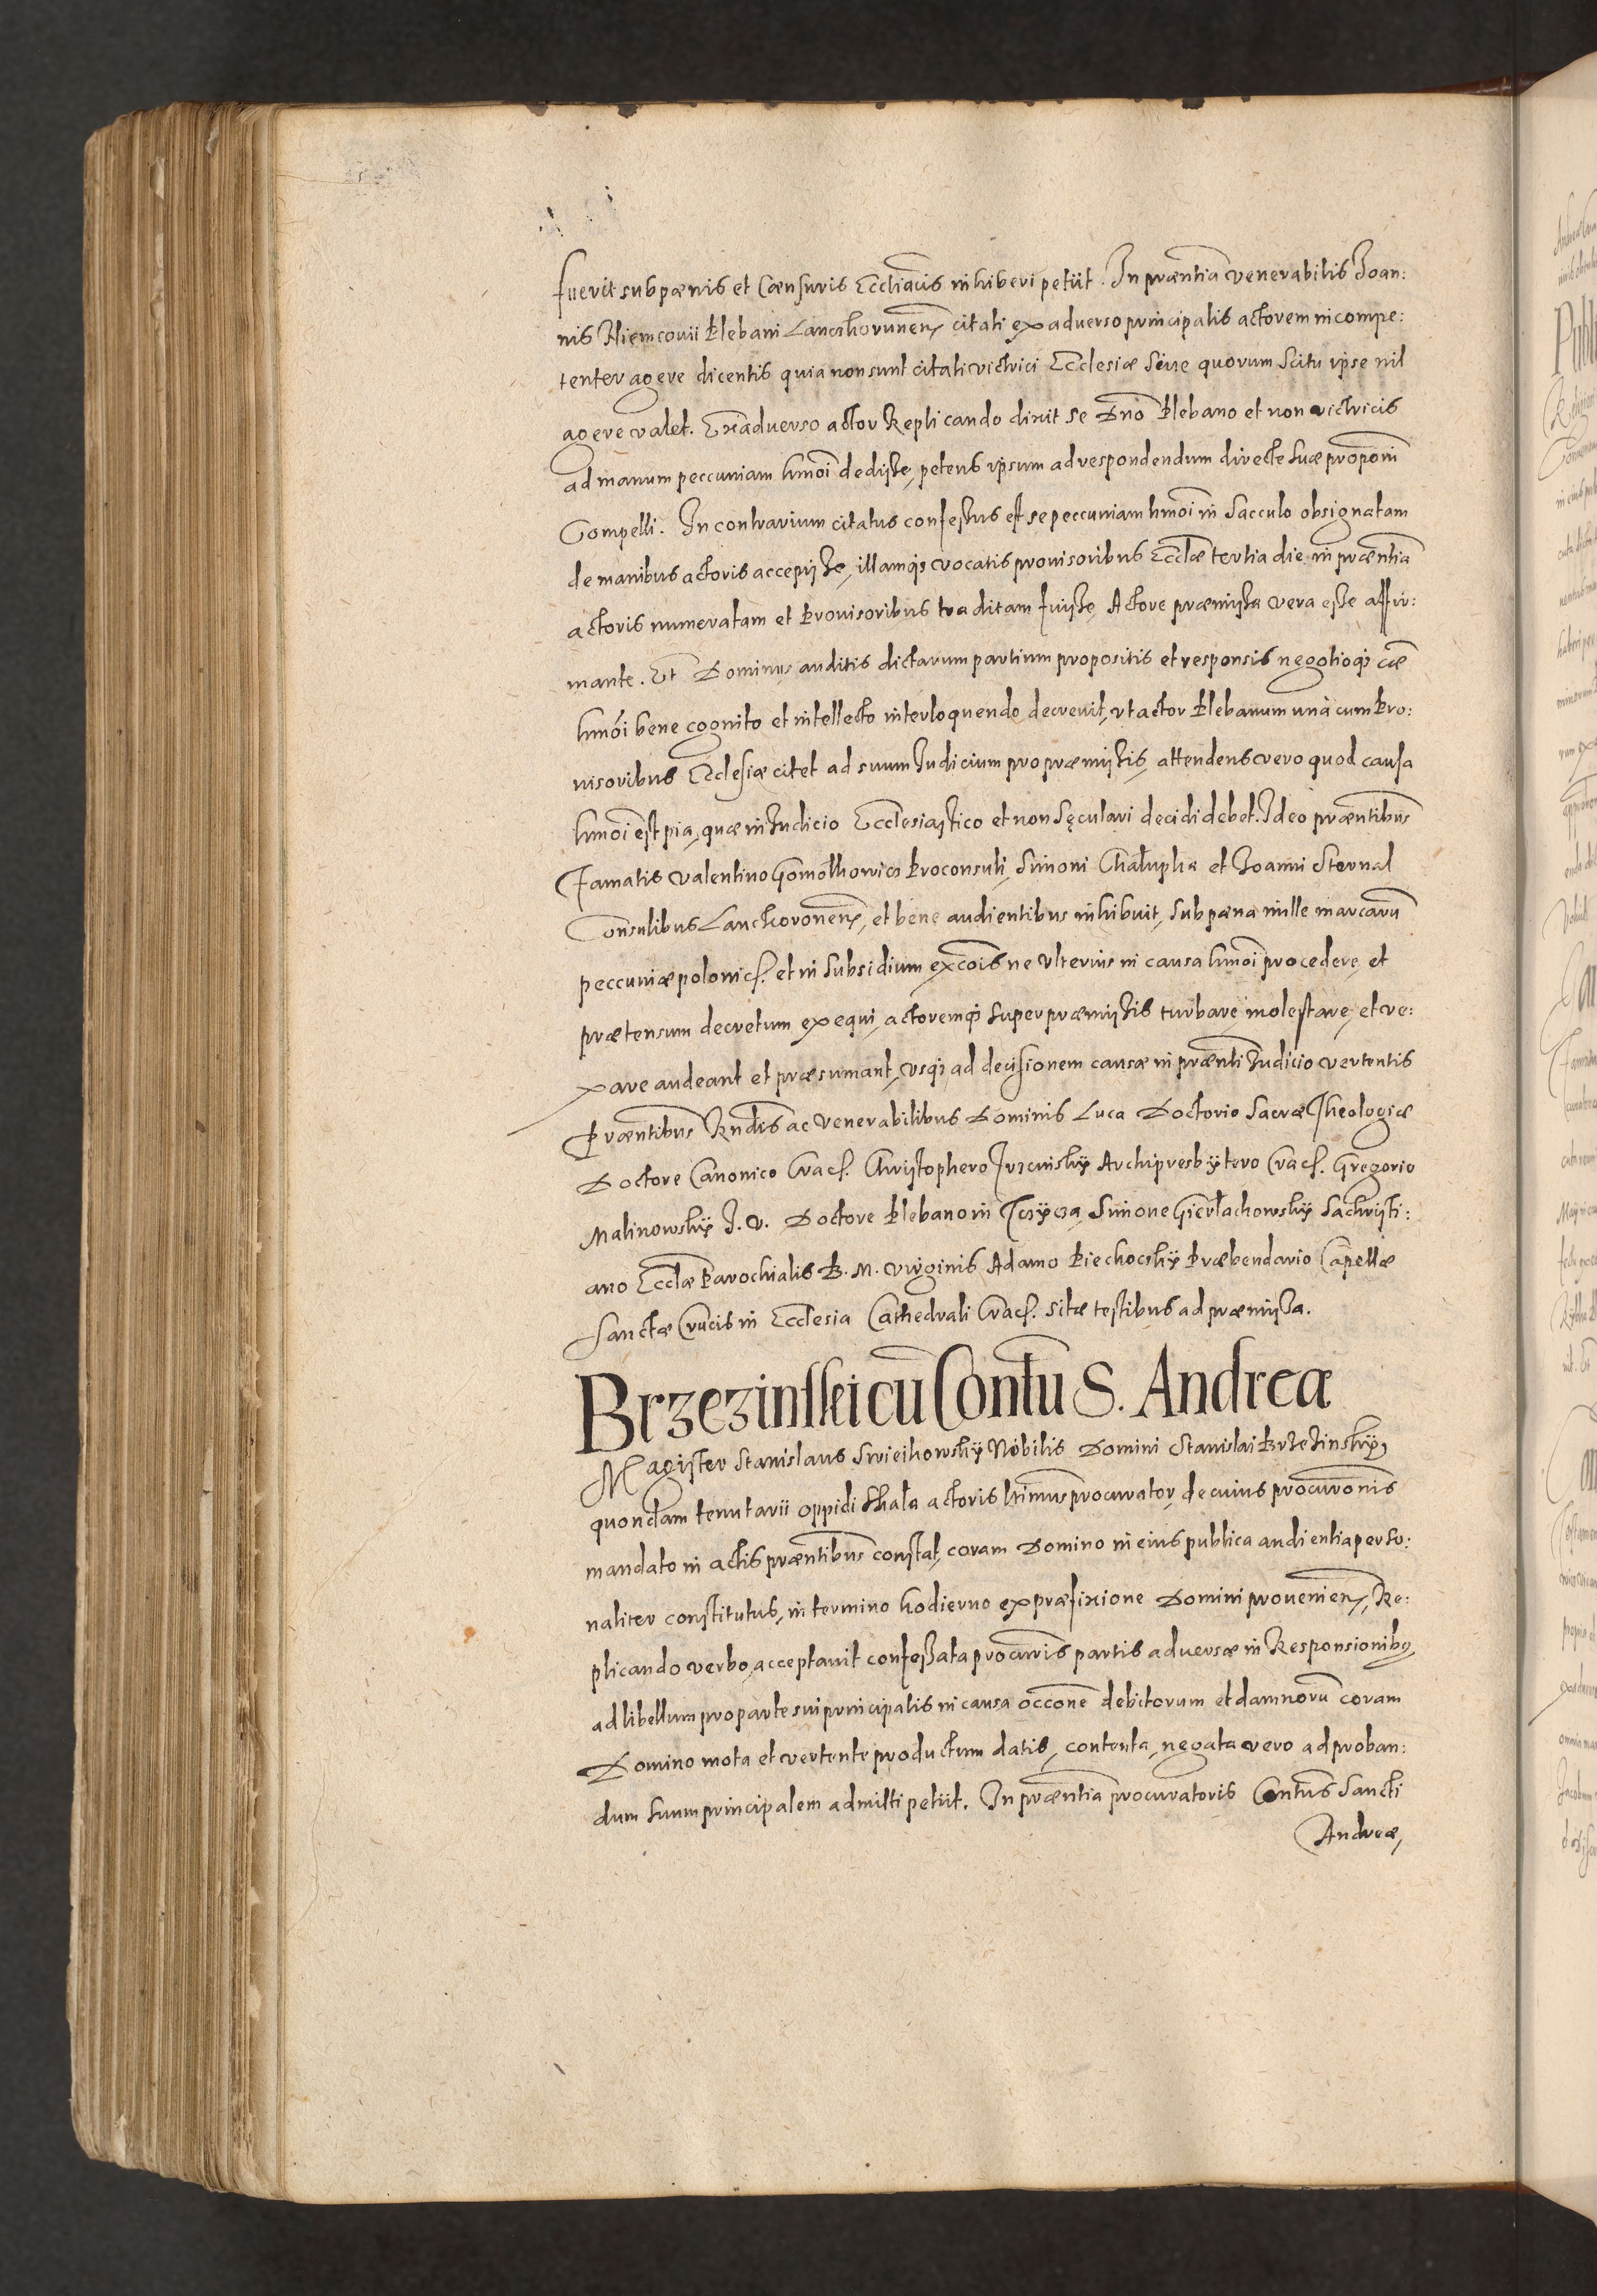 fuerit sub pænis et Cænsuris Eccliãcis inhiberi petiit. In præntĩa venerabilis Joan:
nis Niemcouii Plebani Lanczkorunen citati ex adverso principalis actorem incompe:
tenter agere dicentis quia non sunt citati victrici Ecclesiæ quorum scitu ipse nil
agere valet. Ex adverso actor Replicando dixit se Dño Plebano et non victricis
ad manum peccuniam hmõi dedisse, petens ipsum ad respondendum directe suæ propõni
Compelli. In contrarium citatus confessus est se peccuniam hmõi in sacculo obsignatam
de manibus actoris accepisse, illamq; vocatis prouisoribus Ecclæ tertia die in præntĩa
actoris numeratam et Prouisoribus traditam fuisse, Actore præmissa vera esse affir:
mante. Et Dominus auditis dictarum partium propositis et responsis negotioq; cæ
hmõi bene cognito et intellecto interloquendo decreuit, vt actor Plebanum unà cum Pro:
uisoribus Ecclesiæ citet ad suum Iudicium pro præmissis, attendens vero quod causa
hmõi est pia, quæ in Iudicio Ecclesiastico et non sęculari decidi debet. Ideo præntibus
Famatis Valentino Gomolkowicz Proconsuli, Simoni Chałupka et Joanni Sternal
Consulibus Lanckoronen, et bene audientibus inhibuit, sub pæna mille marcarũ
peccuniæ polonicę. et in subsidium excõis ne vlterius in causa hmõi procedere, et
prætensum decretum exequi, actoremq; super præmissis turbare, molestare, et ve:
xare audeant et præsumant, vsq; ad decisionem causæ in præntĩ Iudicio vertentis
Præntibus Rndis ac Venerabilibus Dominis Luca Doctorio Sacræ Theologiæ
Doctore Canonico Cracę. Christophero Archipresbytero Cracę. Gregorio
Malinowskÿ J. V. Doctore Plebano in Simone Gierłachowskÿ Sachristi:
ano Ecclæ Parochialis B. M. Virginis Adamo Piechockÿ Præbendario Capellæ
Sanctæ Crucis in Ecclesia Cathedrali Cracę. sitæ testibus ad præmissa.
Brzezinskei cũ Contũ S. Andreæ
Magister Stanislaus Swieikowskÿ Nobilis Domini Stanislai Brzezinskÿ,
quondam tenutarii oppidi Skała actoris ltimus procurator, de cuius procurõnis
mandato in actis præntibus constat, coram Domino in eius publica audientia perso:
naliter constitutus, in termino hodierno ex præfixione Domini prouenien, Re:
plicando verbo, acceptauit confessata procuris partis aduersæ in Responsionibq
ad libellum pro parte sui principalis in causa occõne debitorum et damnorũ coram
Domino mota et vertente productum datis, contenta, negata vero ad proban:
dum suum principalem admitti petiit. In præntĩa procuratoris Contus Sancti
Andreæ,